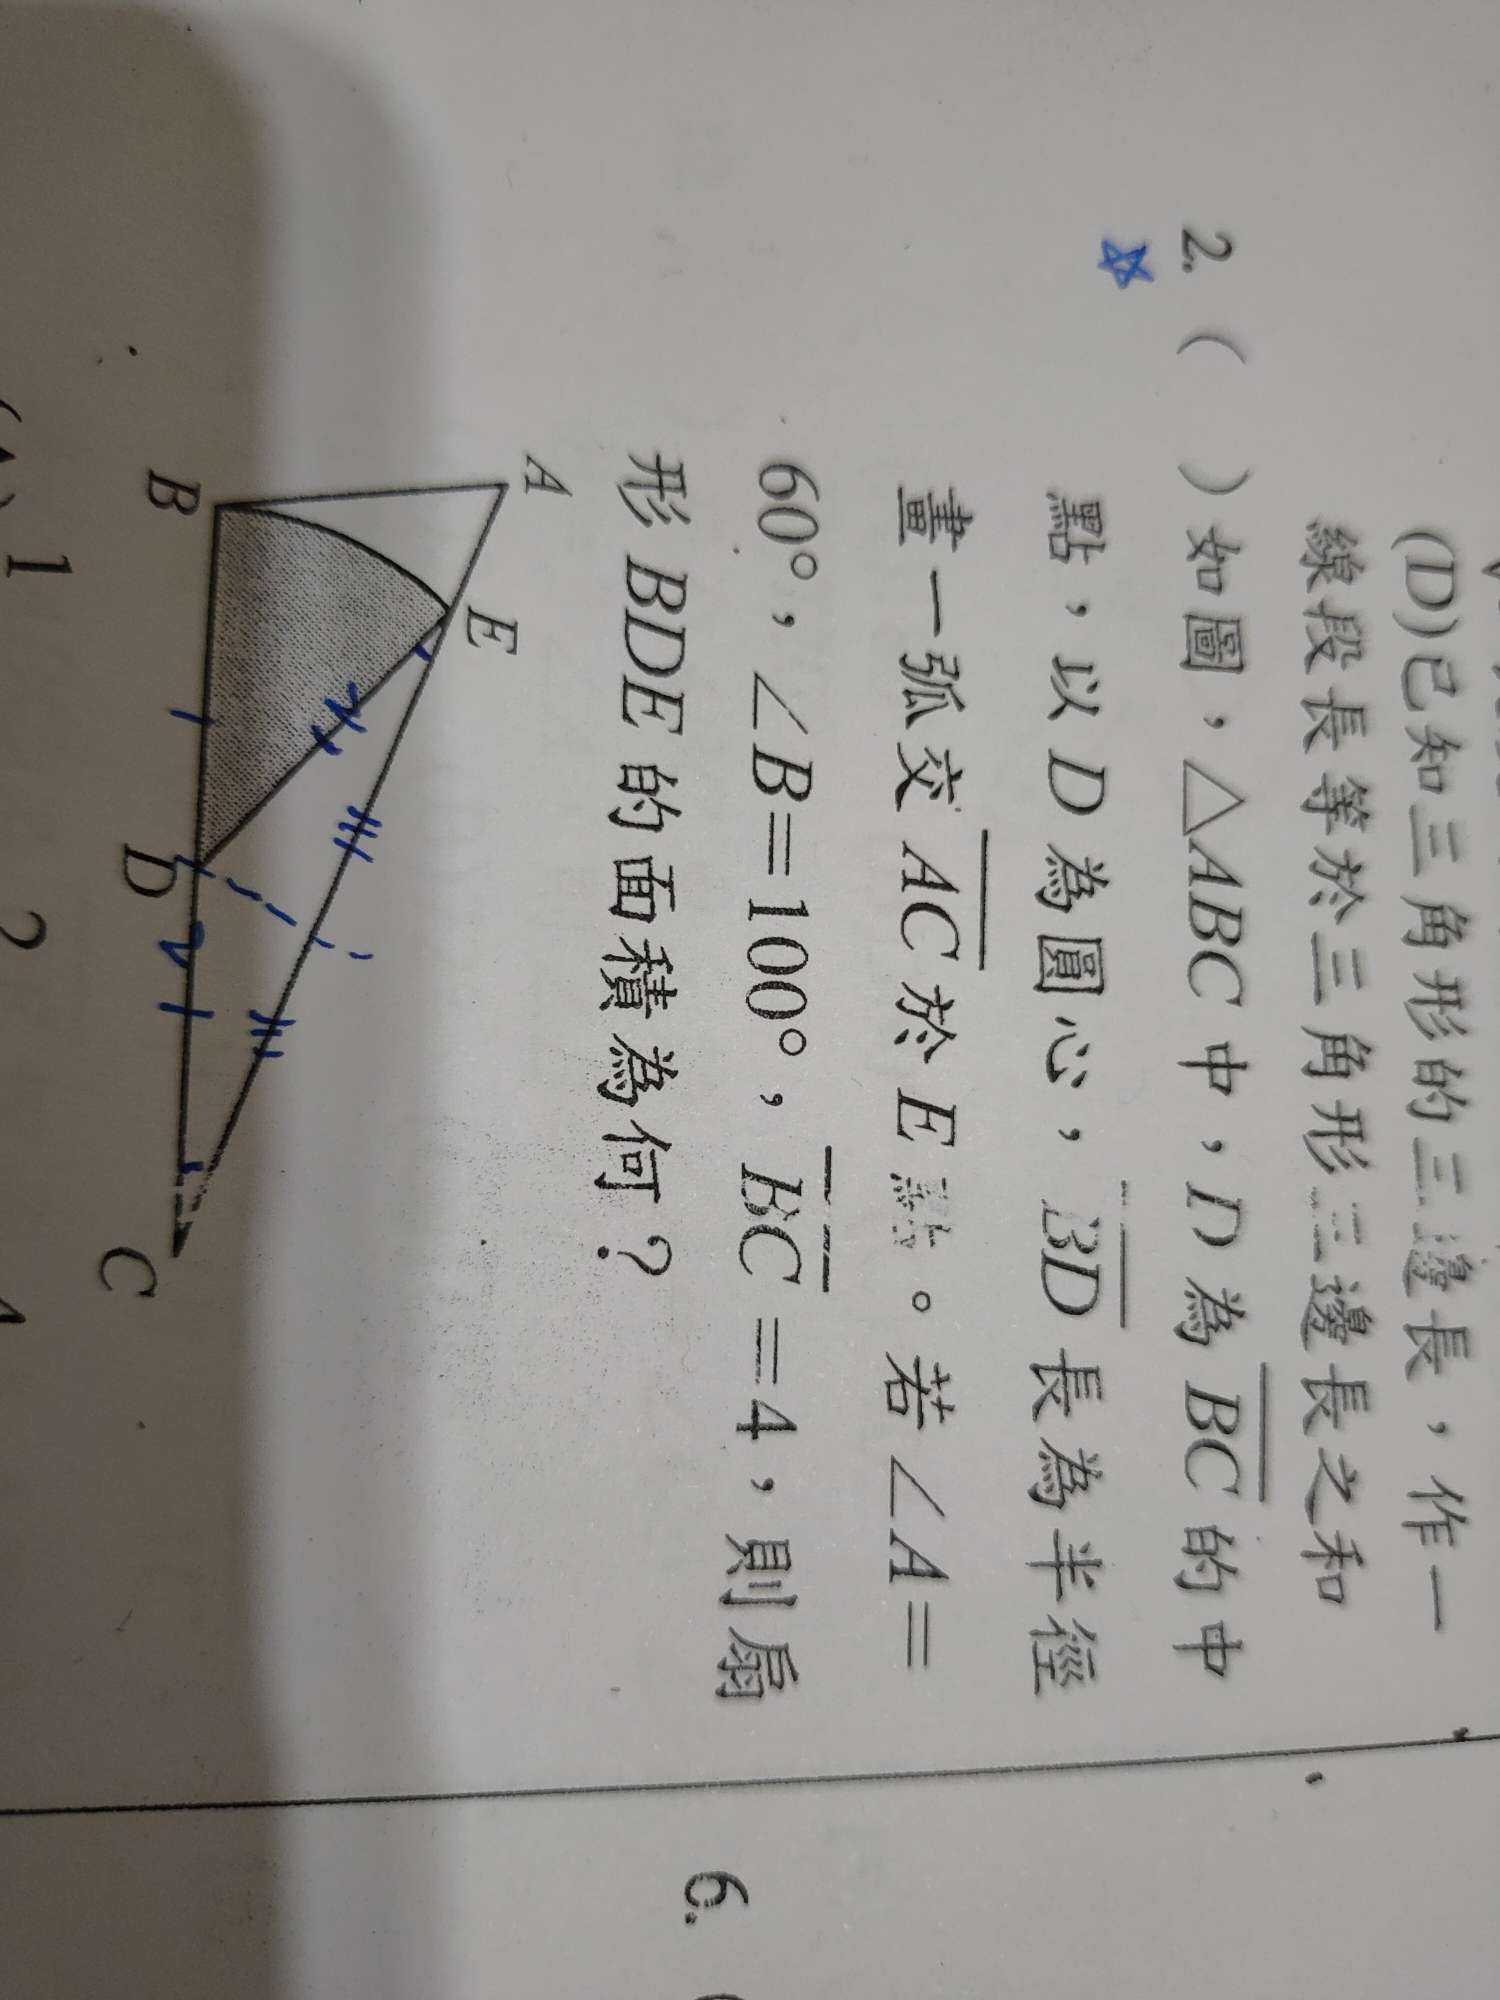 (D)已知三角形的三邊長，作一
線段長等於三角形三邊長之和
2. (　) 如圖，△ABC中，D為BC的中
點，以D為圓心，BD長為半徑
畫一弧交AC於E點。若∠A=
60°，∠B=100°，BC=4，則扇
形BDE的面積為何？
A
E
B
D
C
1
2
6. (